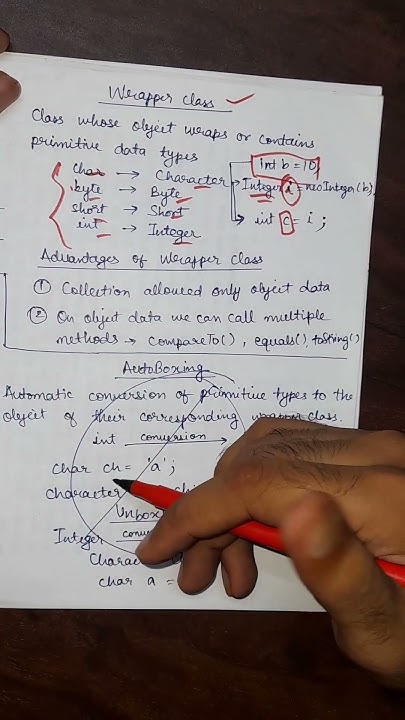 Wrapper Class
Class whose object wraps or contains
primitive data types
char → Character
byte → Byte
short → Short
int → Integer
int b = 10
Integer i = new Integer(b),
int c = i ;
Advantages of Wrapper Class
① Collection allowed only object data
② On object data we can call multiple
methods → compareTo(), equals(), toString()
AutoBoxing
Automatic conversion of primitive types to the
object of their corresponding wrapper class.
int conversion →
char ch = 'a' ;
character ch
Unbox
Integer conv
Charac
char a =